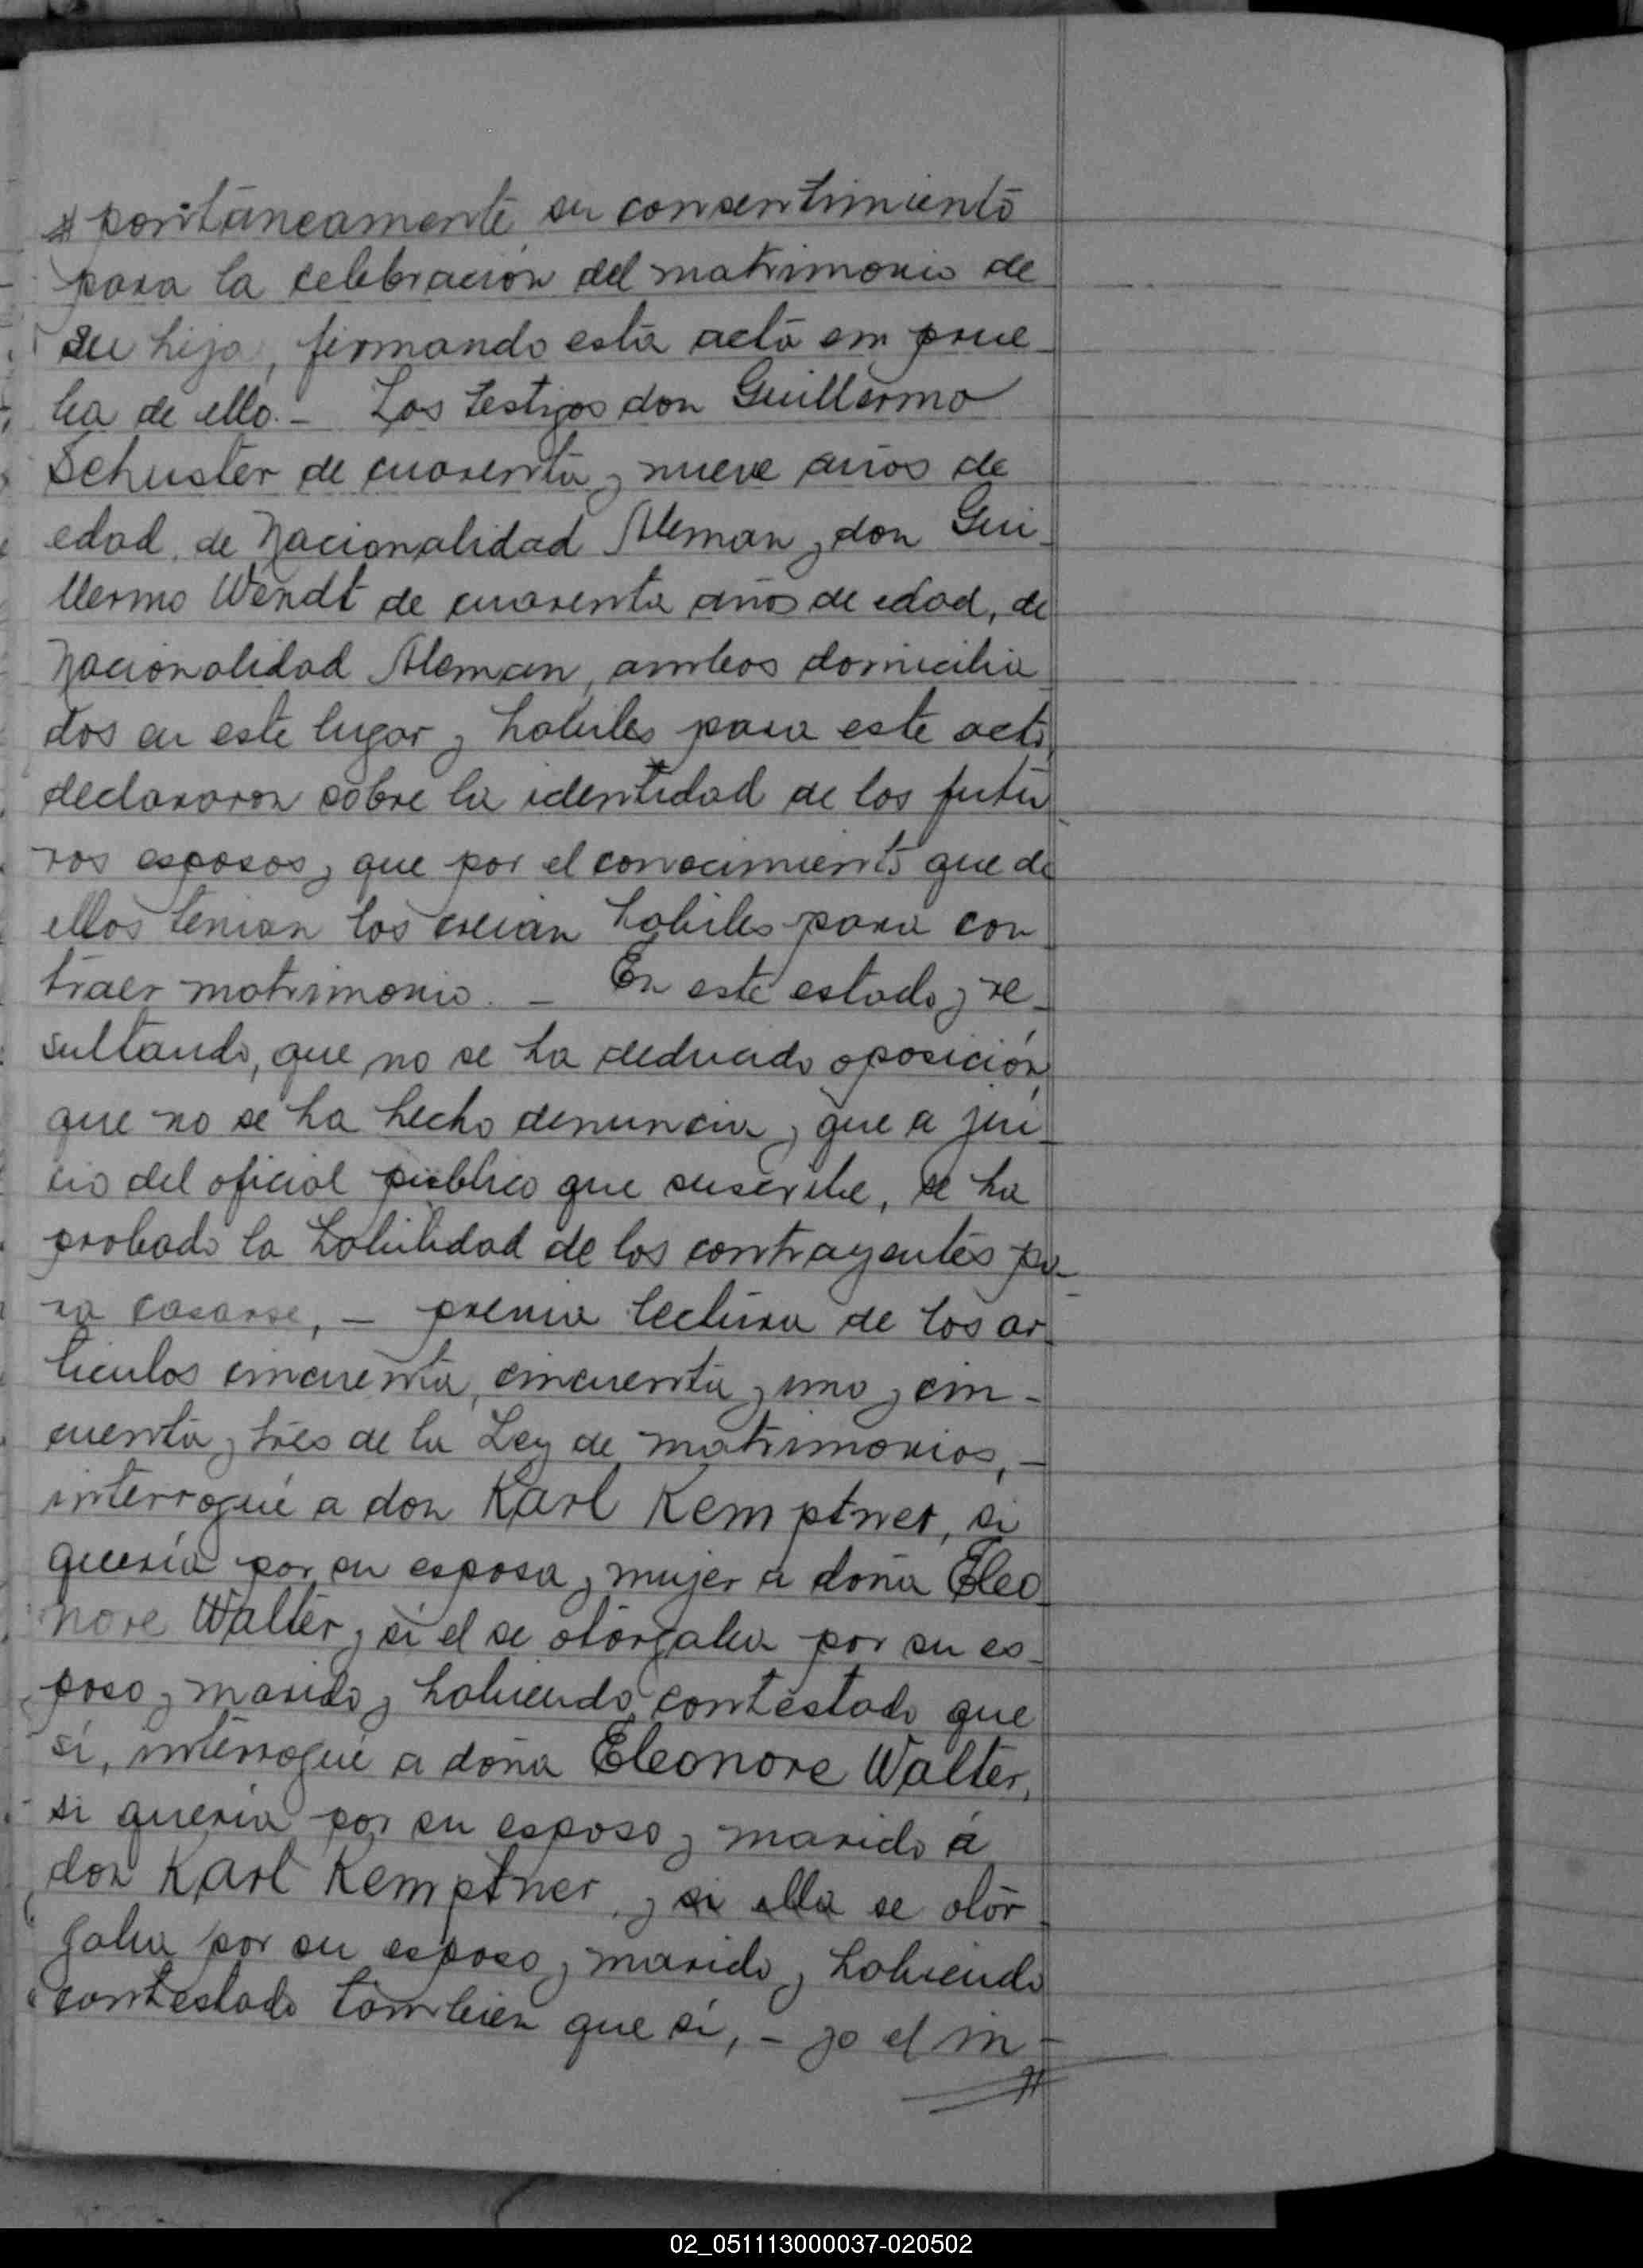 pontáneamente su consentimiento
para la celebración del matrimonio de
su hija, firmando esta acta en prue-
ba de ello. - Los testigos don Guillermo
Schuster de cuarenta y nueve años de
edad, de Nacionalidad Aleman y don Gui-
llermo Wendt de cuarenta años de edad, de
Nacionalidad Aleman, ambos domicilia
dos en este lugar y habiles para este acto,
declararon sobre la identidad de los futu
ros esposos y que por el conocimiento que de
ellos tenian los creian habiles para con
traer matrimonio. - En este estado y re-
sultando, que no se ha deducido oposición,
que no se ha hecho denuncia y que a jui-
cio del oficial público que suscribe, se ha
probado la habilidad de los contrayentes pa-
ra casarse, - previa lectura de los ar-
ticulos cincuenta, cincuenta y uno y cin-
cuenta y tres de la Ley de matrimonios, -
interrogué a don Karl Kemptner, si
quería por su esposa y mujer a doña Eleo-
nore Walter y si el se otorgaba por su es-
poso y marido y habiendo contestado que
sí, interrogué a doña Eleonore Walter,
si queria por su esposo y marido á
don Karl Kemptner, y si ella se otor-
gaba por su esposo y marido y habiendo
contestado tambien que si, - yo el in-
02_051113000037-020502